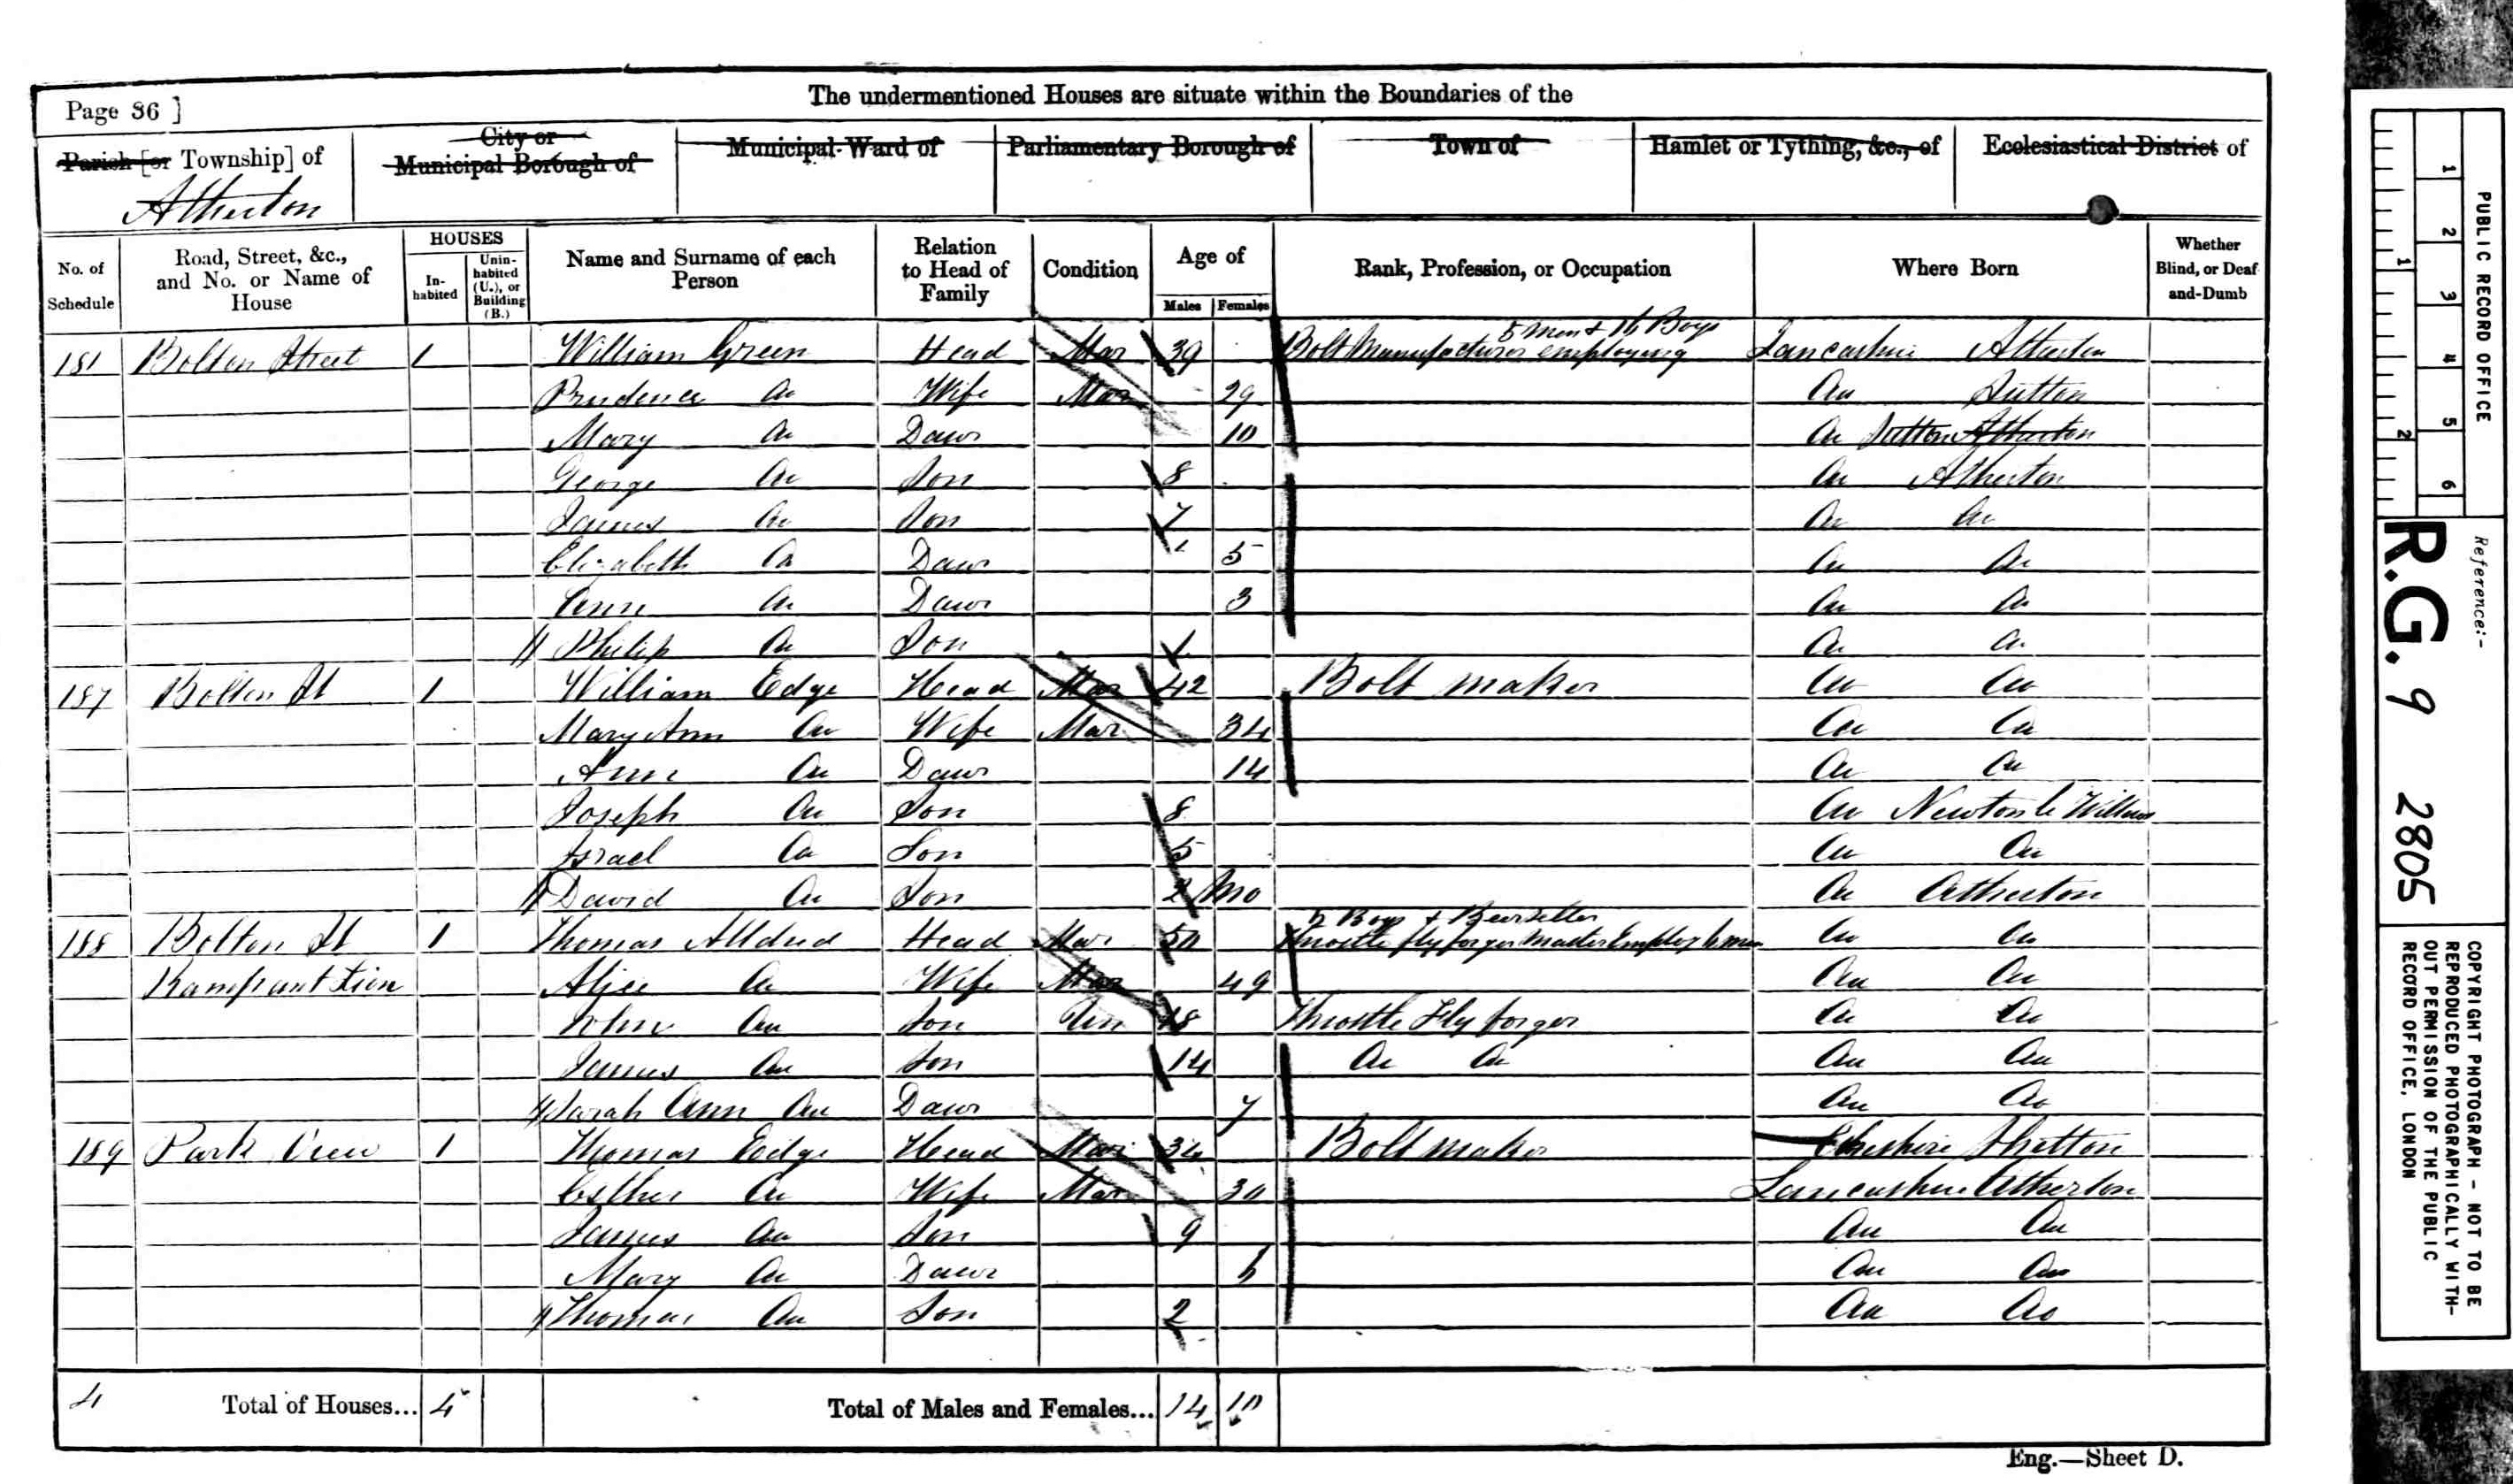 The undermentioned Houses are situate within the Boundaries of the
Page 36 ]
Parish [or Township] of
City or Municipal Borough of
Municipal Ward of
Parliamentary Borough of
Town of
Hamlet or Tything, &c., of
Ecclesiastical District of
Atherton
No. of Schedule
Road, Street, &c., and No. or Name of House
HOUSES
In-habited
Unin-habited (U.), or Building (B.)
Name and Surname of each Person
Relation to Head of Family
Condition
Age of
Males
Females
Rank, Profession, or Occupation
Where Born
Whether Blind, or Deaf-and-Dumb
5 Men & 16 Boys
181 Bolton Street 1 William Green Head Mar 39 Bolt Manufacturer employing Lancashire Atherton
Prudence Do Wife Mar 29 Do Sutton
Mary Do Daur 10 Do Sutton Atherton
George Do Son 8 Do Atherton
James Do Son 7 Do Do
Elizabeth Do Daur 5 Do Do
Ann Do Daur 3 Do Do
Philip Do Son 1 Do Do
187 Bolton St 1 William Edge Head Mar 42 Bolt maker Do Do
Mary Ann Do Wife Mar 34 Do Do
Ann Do Daur 14 Do Do
Joseph Do Son 8 Do Newton le Willows
Israel Do Son 5 Do Do
David Do Son 2 Mo Do Atherton
Boys & Beerseller
188 Bolton St 1 Thomas Alldred Head Mar 50 Throstle fly forger Master Employ men Do Do
Rampant Lion Alice Do Wife Mar 49 Do Do
John Do Son Un 18 Throstle Fly forger Do Do
James Do Son 14 Do Do Do Do
Sarah Ann Do Daur 7 Do Do
189 Park View 1 Thomas Edge Head Mar 34 Bolt maker Cheshire
Esther Do Wife Mar 30 Lancashire Atherton
James Do Son 9 Do Do
Mary Do Daur 6 Do Do
Thomas Do Son 2 Do Do
4 Total of Houses... 4 Total of Males and Females... 14 10
Eng.—Sheet D.
PUBLIC RECORD OFFICE
1 2 3 4 5 6
1 2
Reference:-
R.G. 9 2805
COPYRIGHT PHOTOGRAPH - NOT TO BE
REPRODUCED PHOTOGRAPHICALLY WITH-
OUT PERMISSION OF THE PUBLIC
RECORD OFFICE, LONDON